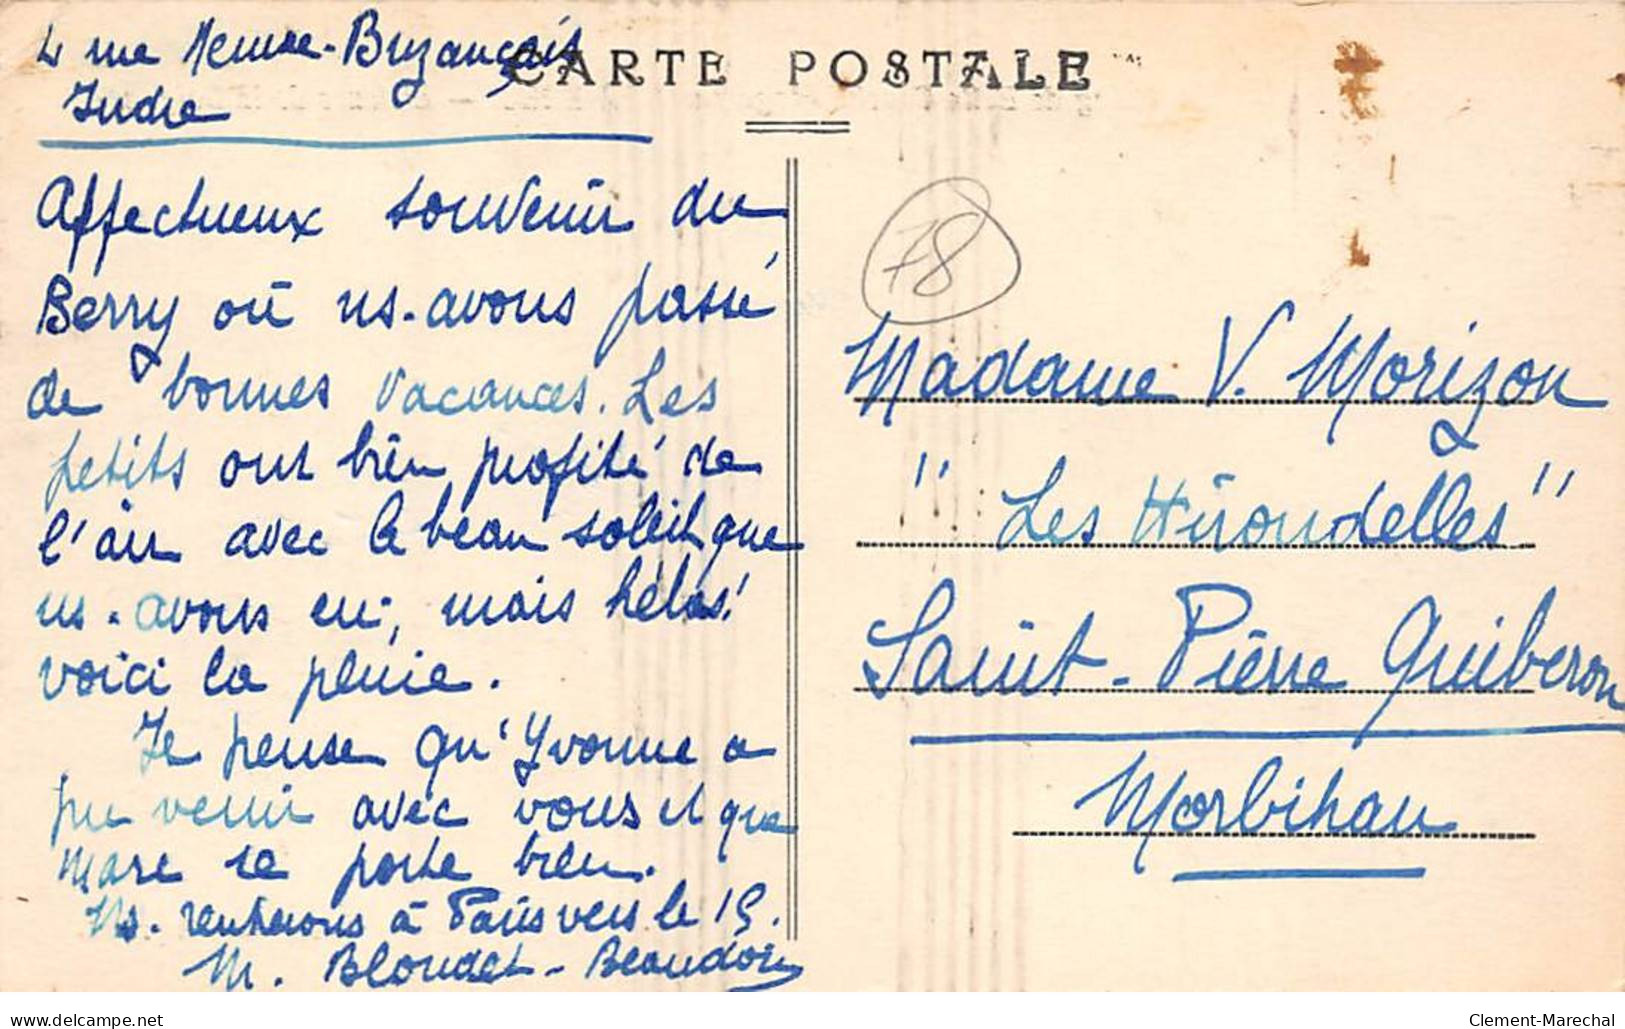 4 rue Neuve - Buzançais
Indre
CARTE POSTALE
Affectueux souvenir du
Berry où ns. avons passé
de bonnes vacances. Les
petits ont bien profité de
l'air avec le beau soleil que
ns. avons eu, mais hélas!
voici la pluie.
Je pense qu'Yvonne a
pu venir avec vous et que
Marc se porte bien.
Ns. rentrerons à Paris vers le 15.
M. Blondet - Beaudoin
78
Madame V. Morizon
"Les Hirondelles"
Saint-Pierre Quiberon
Morbihan
delcampe.net
Clement-Marechal